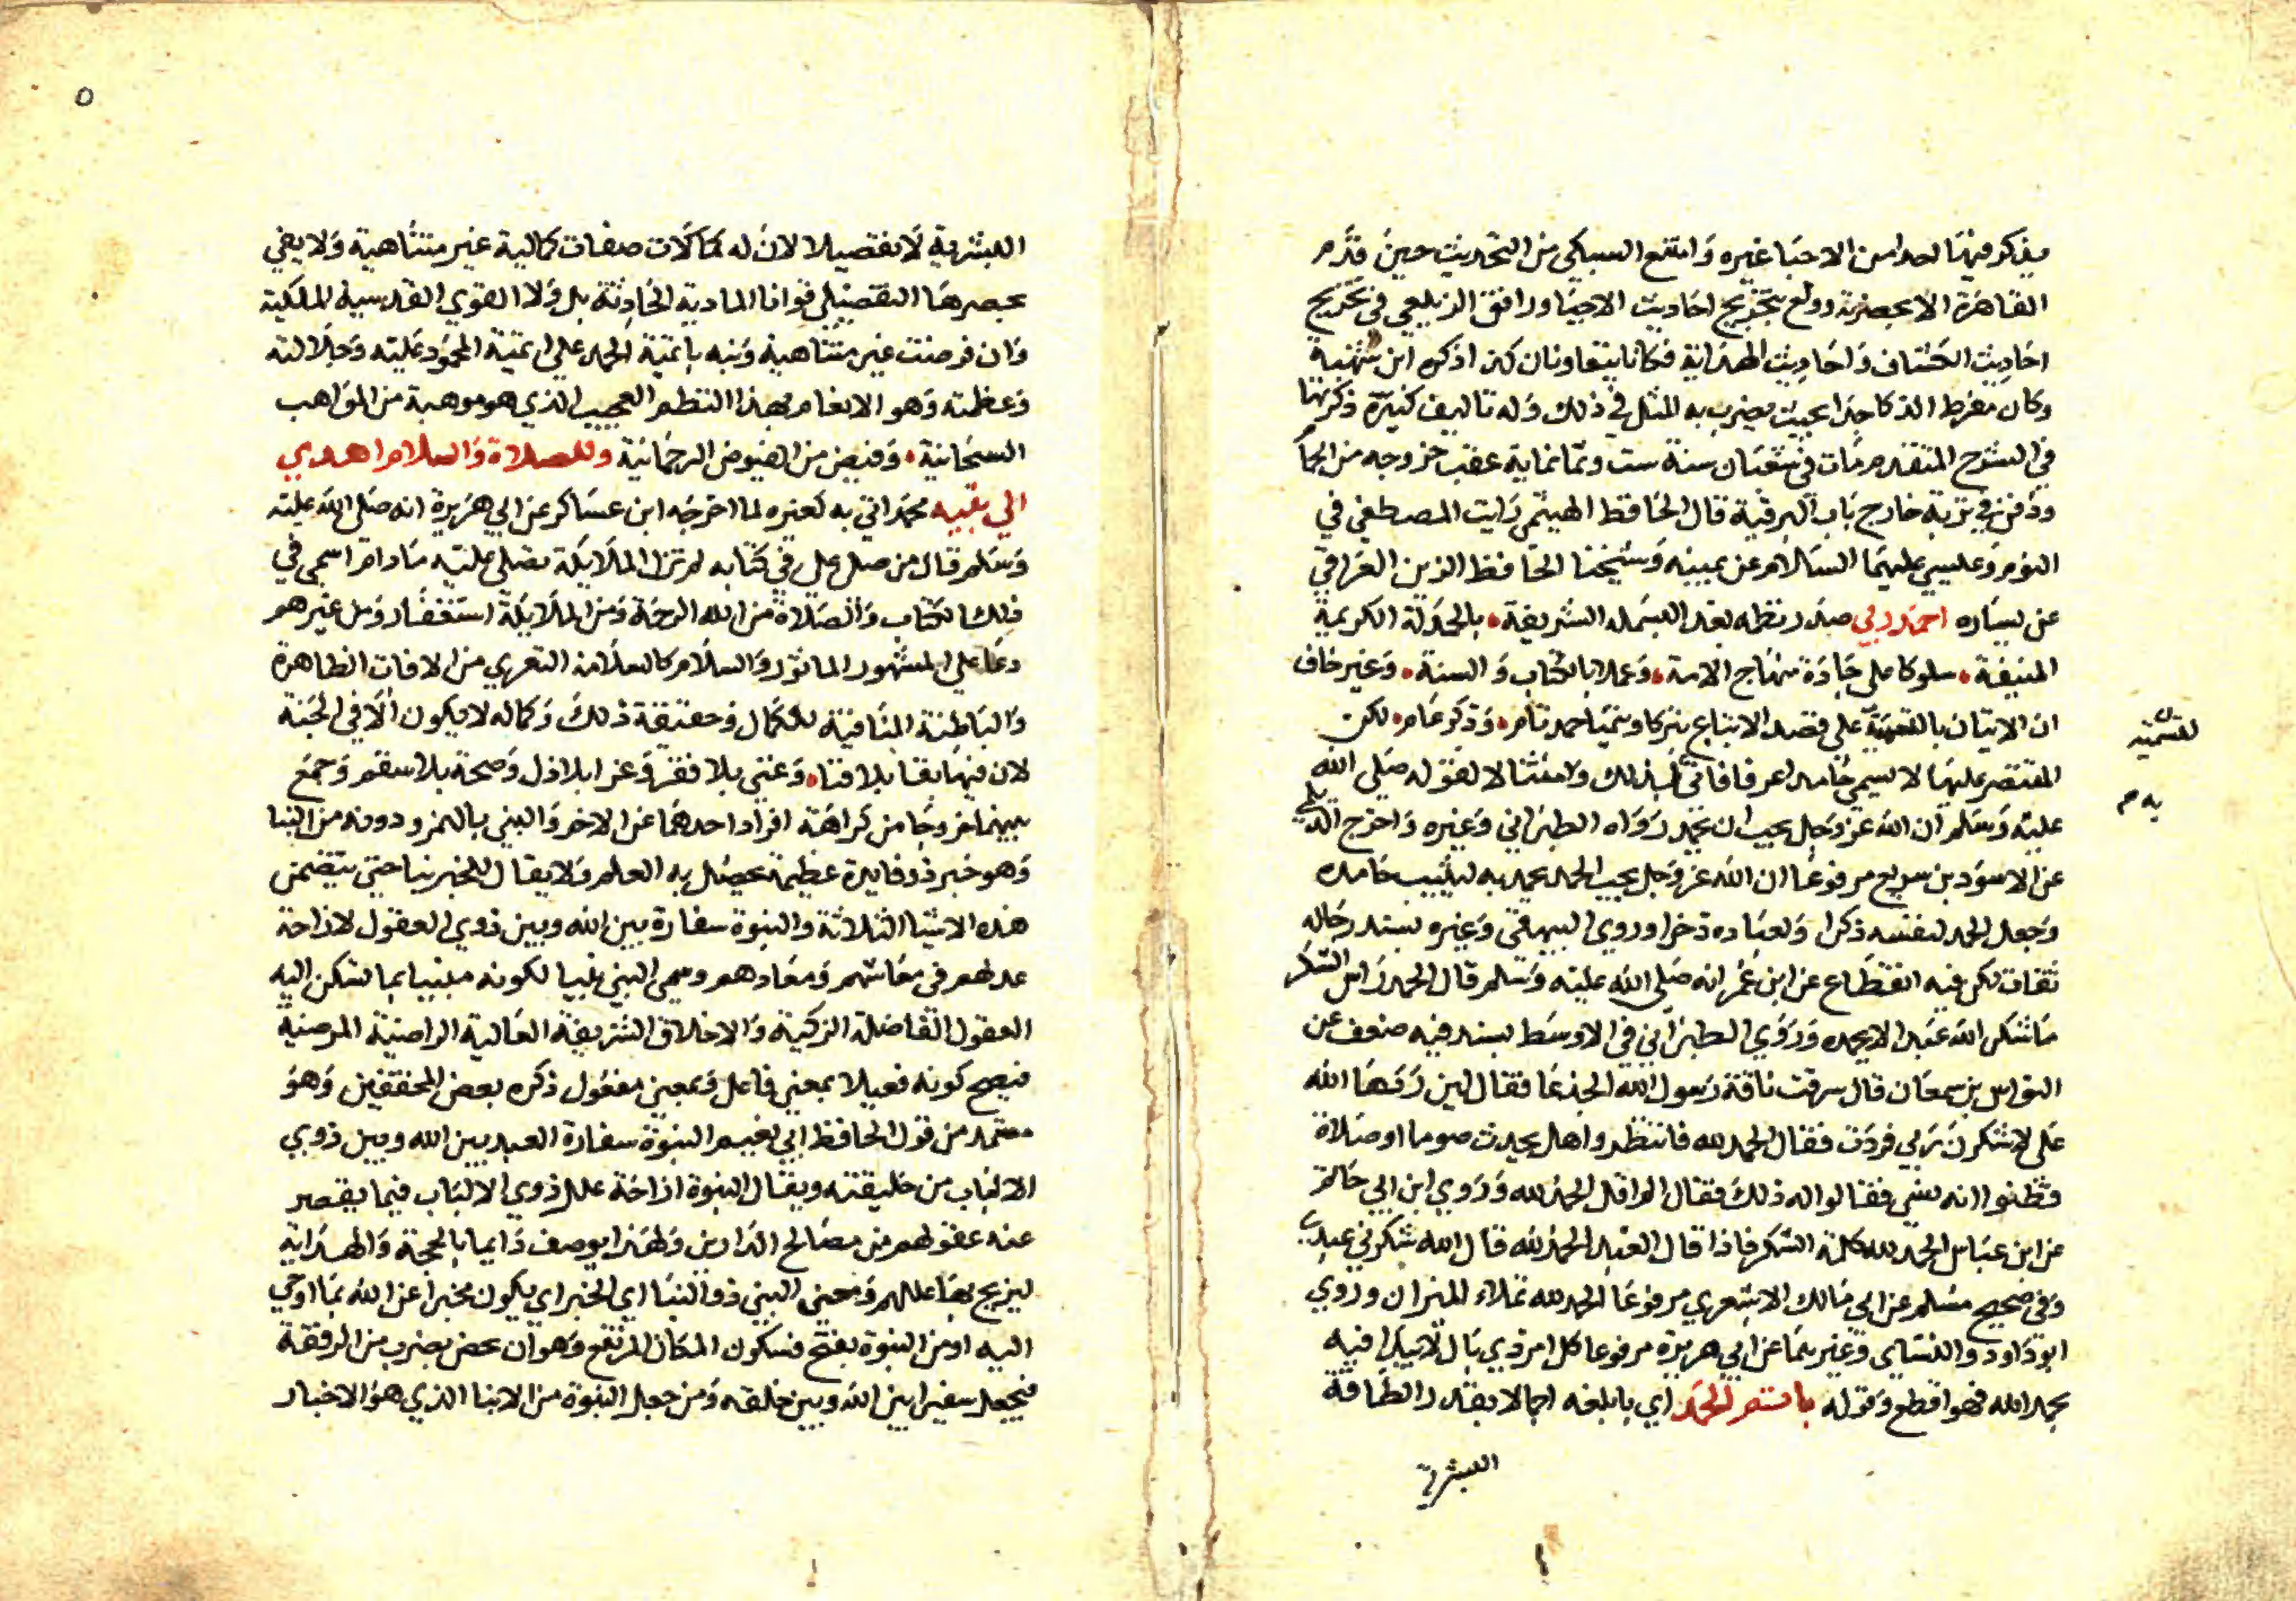 يذكر فيها احدا من الاحيا غيره وامتنع السبكي من التحديث حين قدم
القاهرة الا بحضرته وولع بتخريج احاديث الاحيا ورافق الزيلعي في تخريج
احاديث الكشاف واحاديث الهداية فكانا يتعاونان كذا ذكره ابن شهبة
وكان مفرط الذكا جدا بحيث يضرب به المثل في ذلك وله تاليف كثيرة ذكرتها
في الشرح المتقدم مات في شعبان سنة ست وثمانماية عقب خروجه من الحما
ودفن في تربة خارج باب البرقية قال الحافظ الهيثمي رايت المصطفى في
النوم وعيسى عليهما السلام عن يمينه وشيخنا الحافظ الزين العراقي
عن يساره احمد ربي صدر نظمه بعد البسملة الشريفة بالحمدلة الكريمة
المنيفة سلوكا على جادة منهاج الامة وعملا بالكتاب والسنة وغير خاف
ان الاتيان بالتسمية على قصد الاتباع تبركا وتيمنا حمد تام وذكر عام لكن
المقتصر عليها لا يسمى حامدا عرفا فاتى بذلك وامتثالا لقوله صلى الله
عليه وسلم ان الله عز وجل يحب ان يحمد رواه الطبراني وغيره واخرج الديلمي
عن الاسود بن سريع مرفوعا ان الله عز وجل يحب الحمد يحمد به ليثيب حامده
وجعل الحمد لنفسه ذكرا ولعباده ذخرا وروى البيهقي وغيره بسند رجاله
ثقات لكن فيه انقطاع عن ابن عمر انه صلى الله عليه وسلم قال الحمد راس الشكر
ما شكر الله عبد الا يحمده وروى الطبراني في الاوسط بسند فيه ضعف عن
النواس بن سمعان قال سرقت ناقة رسول الله الجذعا فقال لين ردها الله
على لاشكرن ربي فردت فقال الحمد لله فانتظروا هل يحدث صوما او صلاة
فظنوا انه نسي فقالوا له ذلك فقال الم اقل الحمد لله وروى ابن ابي حاتم
عن ابن عباس الحمد لله كلمة الشكر فاذا قال العبد الحمد لله قال الله شكرني عبدي
وفي صحيح مسلم عن ابي مالك الاشعري مرفوعا الحمد لله تملاء الميزان وروى
ابو داود والنساي وغيرهما عن ابي هريرة مرفوعا كل امر ذي بال لا يبدا فيه
بحمد الله فهو اقطع وقوله باتم الحمد اي بابلغه اجمالا بقدر الطاقة
البشرية
بالتسمية
البشرية لا تفصيلا لان له كمالات صفات كمالية غير متناهية ولا يفي
بحصرها التفصيلي قوانا المادية الحادثة بل ولا القوى القدسية الملكية
وان فرضت غير متناهية ونبه باتمية الحمد على اتمية المحمود عليه وجلالته
وعظمته وهو الانعام بهذا النظم العجيب الذي هو موهبة من المواهب
السبحانية وفيض من الفيوض الرحمانية وللصلاة والسلام اهدي
الى نبيه محمد اتى به كغيره لما اخرجه ابن عساكر عن ابي هريرة انه صلى الله عليه
وسلم قال من صلى علي في كتابه لم تزل الملايكة تصلي عليه ما دام اسمي في
ذلك الكتاب والصلاة من الله الرحمة ومن الملايكة استغفار ومن غيرهم
دعا على المشهور الماثور والسلام كالسلامة التعري من الافات الظاهرة
والباطنة المنافية للكمال وحقيقة ذلك وكماله لا يكون الا في الجنة
لان فيها بقا بلا فنا وغنى بلا فقر وعز بلا ذل وصحة بلا سقم وجمع
بينهما خروجا من كراهة افراد احدهما عن الاخر والنبي بالهمز ودونه من النبا
وهو خبر ذو فايدة عظيمة يحصل به العلم ولا يقال للخبر نبا حتى يتضمن
هذه الاشيا الثلاثة والنبوة سفارة بين الله وبين ذوي العقول لازاحة
عللهم في معاشهم ومعادهم وسمي النبي نبيا لكونه منبيا بما تسكن اليه
العقول الفاضلة الزكية والاخلاق الشريفة العالية الراضية المرضية
فيصح كونه فعيلا بمعنى فاعل وبمعنى مفعول ذكره بعض المحققين وهو
مستمد من قول الحافظ ابي نعيم النبوة سفارة العبد بين الله وبين ذوي
الالباب من خليقته ويقال النبوة ازاحة علل ذوي الالباب فيما يقصر
عنه عقولهم من مصالح الدارين ولهذا يوصف دايما بالحجة والهداية
ليزيح بها عللهم ومعنى النبي ذو النبا اي الخبر اي يكون مخبرا عن الله بما اوحي
اليه او من النبوة بفتح فسكون المكان المرتفع وهو ان يخص بضرب من الرفعة
فيجعل سفيرا بين الله وبين خلقه ومن جعل النبوة من الانبا الذي هو الاخبار